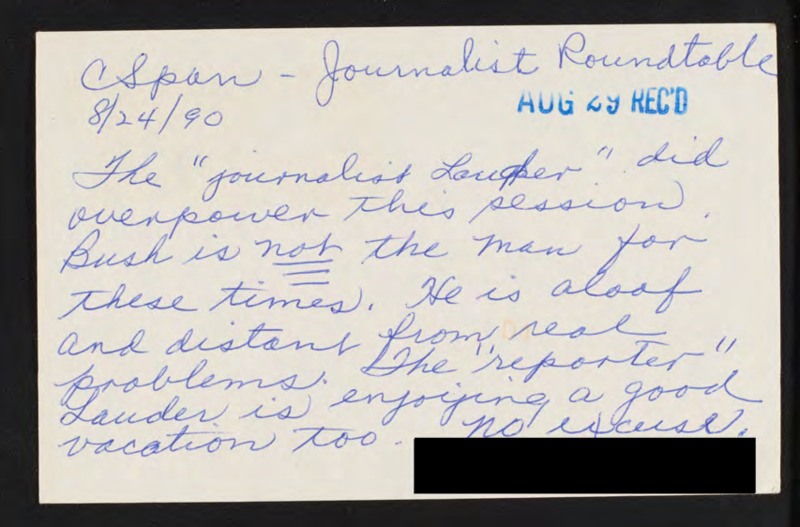 CSpan - Journalist Roundtable
8/24/90
AUG 29 REC'D
The "journalist Lauder" did
overpower this session.
Bush is not the man for
these times. He is aloof
and distant from real
problems. The "reporter"
Lauder is enjoying a good
vacation too. No excuse.